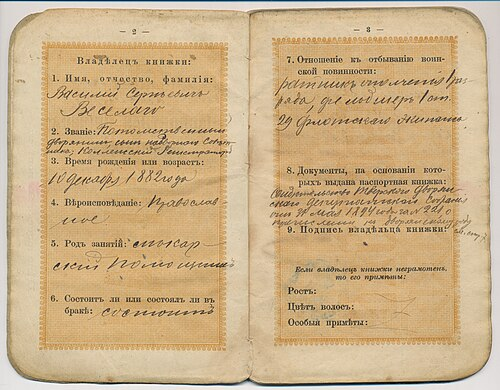 — 2 —
Владѣлецъ книжки:
1. Имя, отчество, фамилія:
Василій Сергѣевичъ
Веселаго
2. Званіе: Потомственный
дворянинъ, сынъ
Коллежскій Регистраторъ
3. Время рожденія или возрастъ:
10 декабря 1882 года
4. Вѣроисповѣданіе: Православ
ное
5. Родъ занятій:
помощникъ
6. Состоитъ ли или состоялъ ли въ
бракѣ: состоитъ
— 3 —
7. Отношеніе къ отбыванію воин-
ской повинности:
ратникъ ополченія 1 раз
ряда
29 Флотскаго Экипажа
8. Документы, на основаніи кото-
рыхъ выдана паспортная книжка:
Свидѣтельство Дворян
скаго Депутатскаго Собранія
Мая 1894 года № 221 о
дворянскому роду
9. Подпись владѣльца книжки:
Если владѣлецъ книжки неграмотенъ,
то его примѣты:
Ростъ:
Цвѣтъ волосъ:
Особыя примѣты: